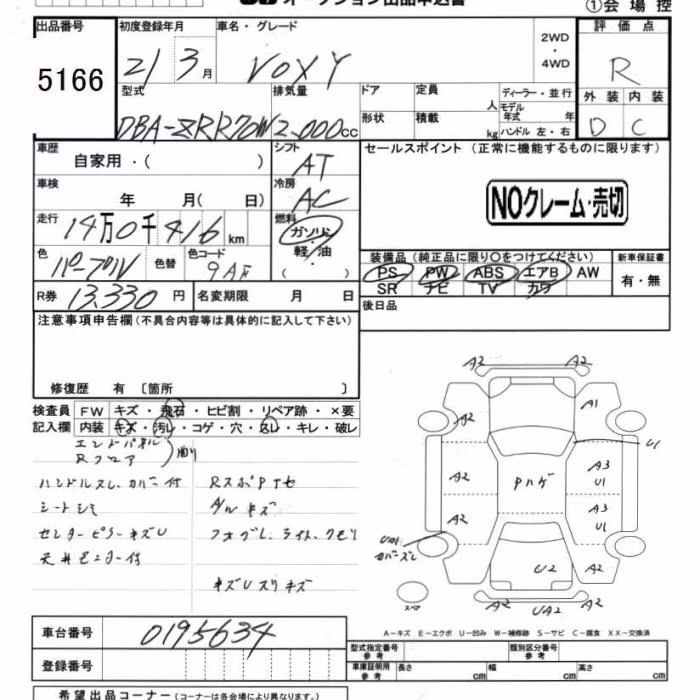 オークション出品申込書
①会場控
出品番号 初度登録年月 車名・グレード 2WD・4WD 評価点
5166 21 3月 VOXY R
型式 排気量 ドア 定員 人 ディーラー・並行 外装 内装
DBA-ZRR70W 2,000cc 形状 積載 kg モデル年式 年 ハンドル 左・右 D C
車歴 シフト セールスポイント(正常に機能するものに限ります)
自家用・( ) AT
車検 年 月( 日) 冷房 AC
NOクレーム・売切
走行 14万0千416km 燃料 ガソリン 軽・油 ・( )
色 パープル 色替 色コード 9AF
装備品(純正品に限り○をつけてください) 新車保証書
PS PW ABS エアB AW 有・無
SR ナビ TV カワ
R券 13,330円 名変期限 月 日
後日品
注意事項申告欄(不具合内容等は具体的に記入して下さい)
修復歴 有 〔箇所 〕
検査員 FW キズ・飛石・ヒビ割・リペア跡・×要
記入欄 内装 キズ・汚レ・コゲ・穴・スレ・キレ・破レ
エンドパネル
Rフロア
ハンドルスレ、カバー付 RスポPTセ
シートシミ A/Wキズ
センターピラーキズU フォグL、ライト、クモリ
天井モニター付
キズUスリキズ
A2 A2
A2 A1
U1
A2 Pハゲ A3 U1
A2 A3 U1
カバーズレ
A2 U2 A2
スマ A2 UA2 A2
A-キズ E-エクボ U-凹み W-補修跡 S-サビ C-腐食 XX-交換済
車台番号 0195634
型式指定番号 参考 類別区分番号 参考
登録番号
車庫証明用 参考 長さ cm 幅 cm 高さ cm
希望出品コーナー(コーナーは各会場により異なります)